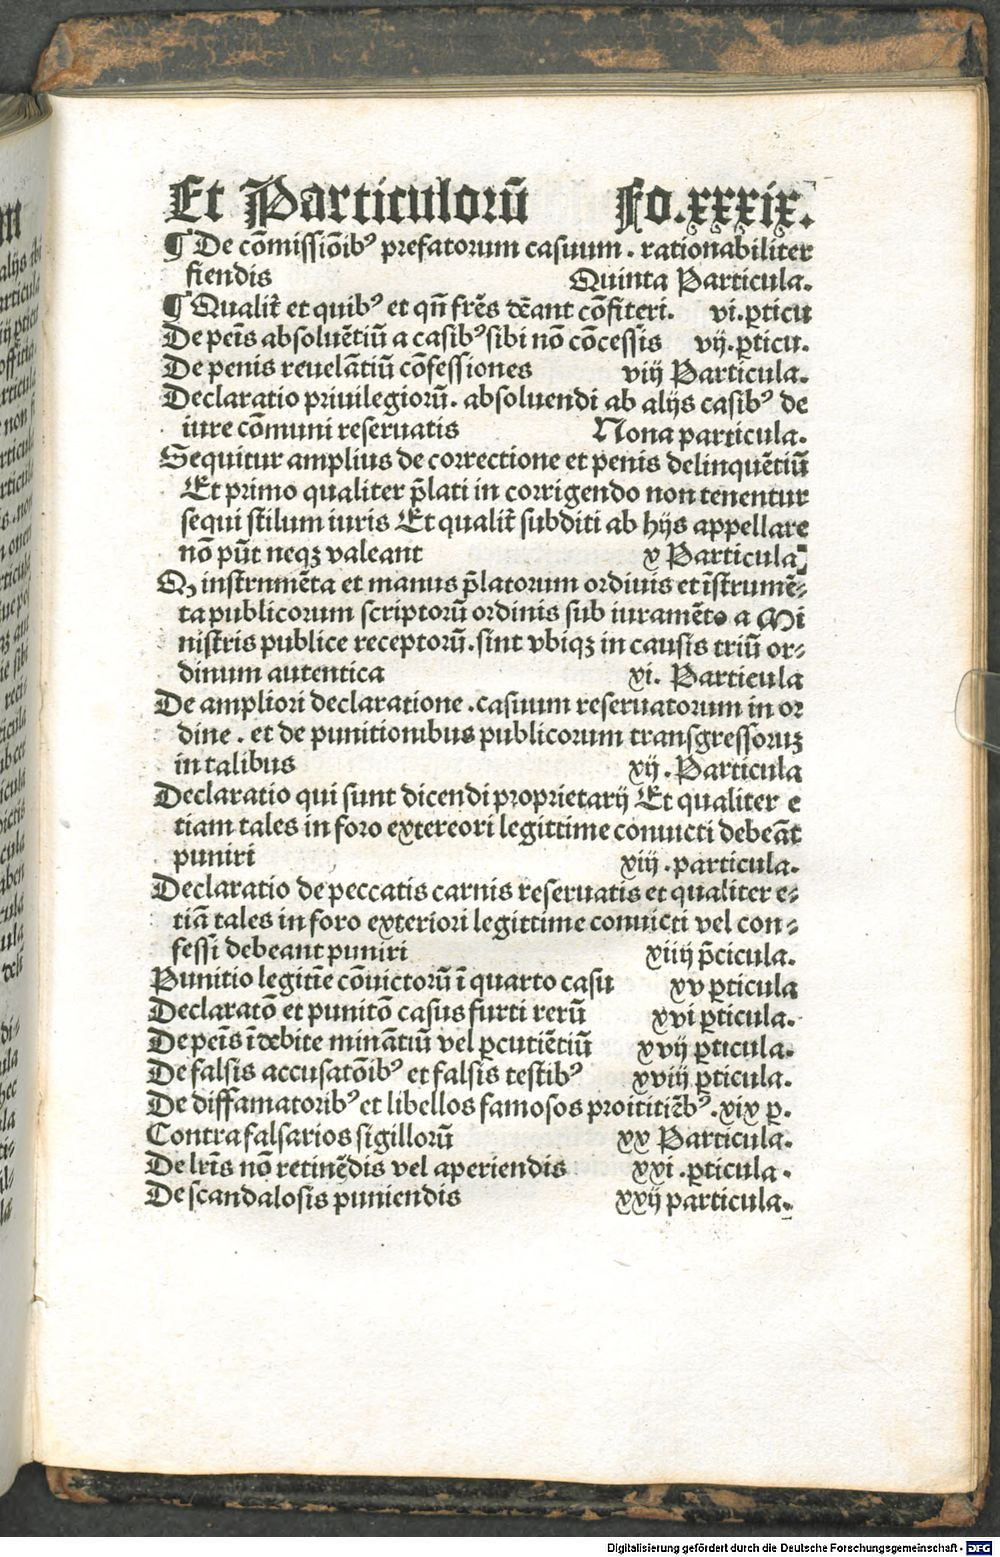 Et Particulorū Fo.xxxix.
¶ De cōmissiōib⁹ prefatorum casuum . rationabiliter
fiendis Quinta Particula.
¶ Qualit̄ et quib⁹ et qn̄ fr̄es dēant cōfiteri. vi.ꝑticu
De pēis absoluētiū a casib⁹ sibi nō cōcessis vij.ꝑticu.
De penis reuelātiū cōfessiones viij Particula.
Declaratio priuilegiorū. absoluendi ab alijs casib⁹ de
iure cōmuni reseruatis Nona particula.
Sequitur amplius de correctione et penis delinquētiū
Et primo qualiter p̄lati in corrigendo non tenentur
sequi stilum iuris Et qualit̄ subditi ab hijs appellare
nō pn̄t neqꝫ valeant x Particula
Q instrnmēta et manus p̄latorum ordiuis et īstrumē⸗
ta publicorum scriptorū ordinis sub iuramēto a Mi
nistris publice receptorū.sint vbiqꝫ in causis triū or⸗
dinum autentica xi. Partieula
De ampliori declaratione .casuum reseruatorum in or
dine . et de punitionibus publicorum transgressoruꝫ
in talibus xij . Particula
Declaratio qui sunt dicendi proprietarij Et qualiter e
tiam tales in foro extereori legittime conuicti debeāt
puniri xiij . particula.
Declaratio de peccatis carnis reseruatis et qualiter e⸗
tiā tales in foro exteriori legittime conuicti vel con⸗
fessi debeant puniri xiiij p̄cicula.
Punitio legitīe cōuictorū ī quarto casu xv ꝑticula
Declaratō et punitō casus furti rerū xvi ꝑticula.
De pēis īdebite minātiū vel ꝑcutiētiū xvij ꝑticula.
De falsis accusatōib⁹ et falsis testib⁹ xviij ꝑticula.
De diffamatorib⁹ et libellos famosos .xix ꝑ.
Contra falsarios sigillorū xx Particula.
De lr̄is nō retinēdis vel aperiendis xxi .ꝑticula .
De scandalosis puniendis xxij particula.
Digitalisierung gefördert durch die Deutsche Forschungsgemeinschaft - DFG